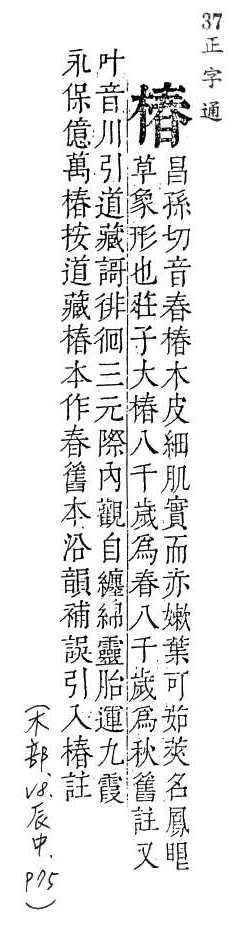 37 正字通
椿 昌孫切音春椿木皮細肌實而赤嫰葉可茹莢名鳳眼
草象形也莊子大椿八千歲爲春八千歲爲秋舊註又
叶音川引道藏謌徘徊三元際內觀自纏綿靈胎運九霞
永保億萬椿按道藏椿本作春舊本沿韻補誤引入椿註
(木部、V8.辰中、P75)